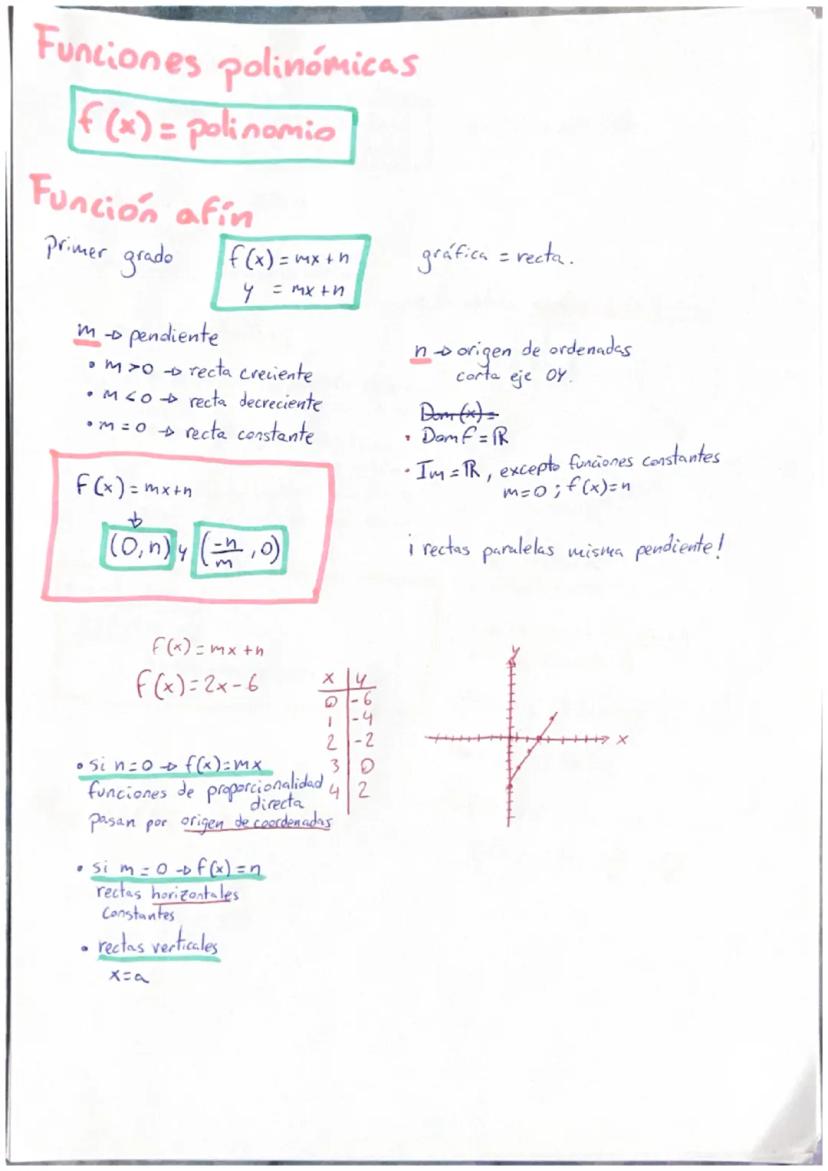 Funciones polinómicas
f(x) = polinomio
Función afín
primer grado
f(x) = mx + n
y = mx + n
gráfica = recta.
m → pendiente
• m > 0 → recta creciente
• m < 0 → recta decreciente
• m = 0 → recta constante
n → origen de ordenadas
corta eje OY.
Dom(x) =
• Dom f = ℝ
• Im = ℝ, excepto funciones constantes
m = 0 ; f(x) = n
¡rectas paralelas misma pendiente!
f(x) = mx + n
↓
(0, n) y (-n/m, 0)
f(x) = mx + n
f(x) = 2x - 6
x | y
0 | -6
1 | -4
2 | -2
3 | 0
4 | 2
y
x
• si n = 0 → f(x) = mx
funciones de proporcionalidad
directa
pasan por origen de coordenadas
• si m = 0 → f(x) = n
rectas horizontales
constantes
• rectas verticales
x = a